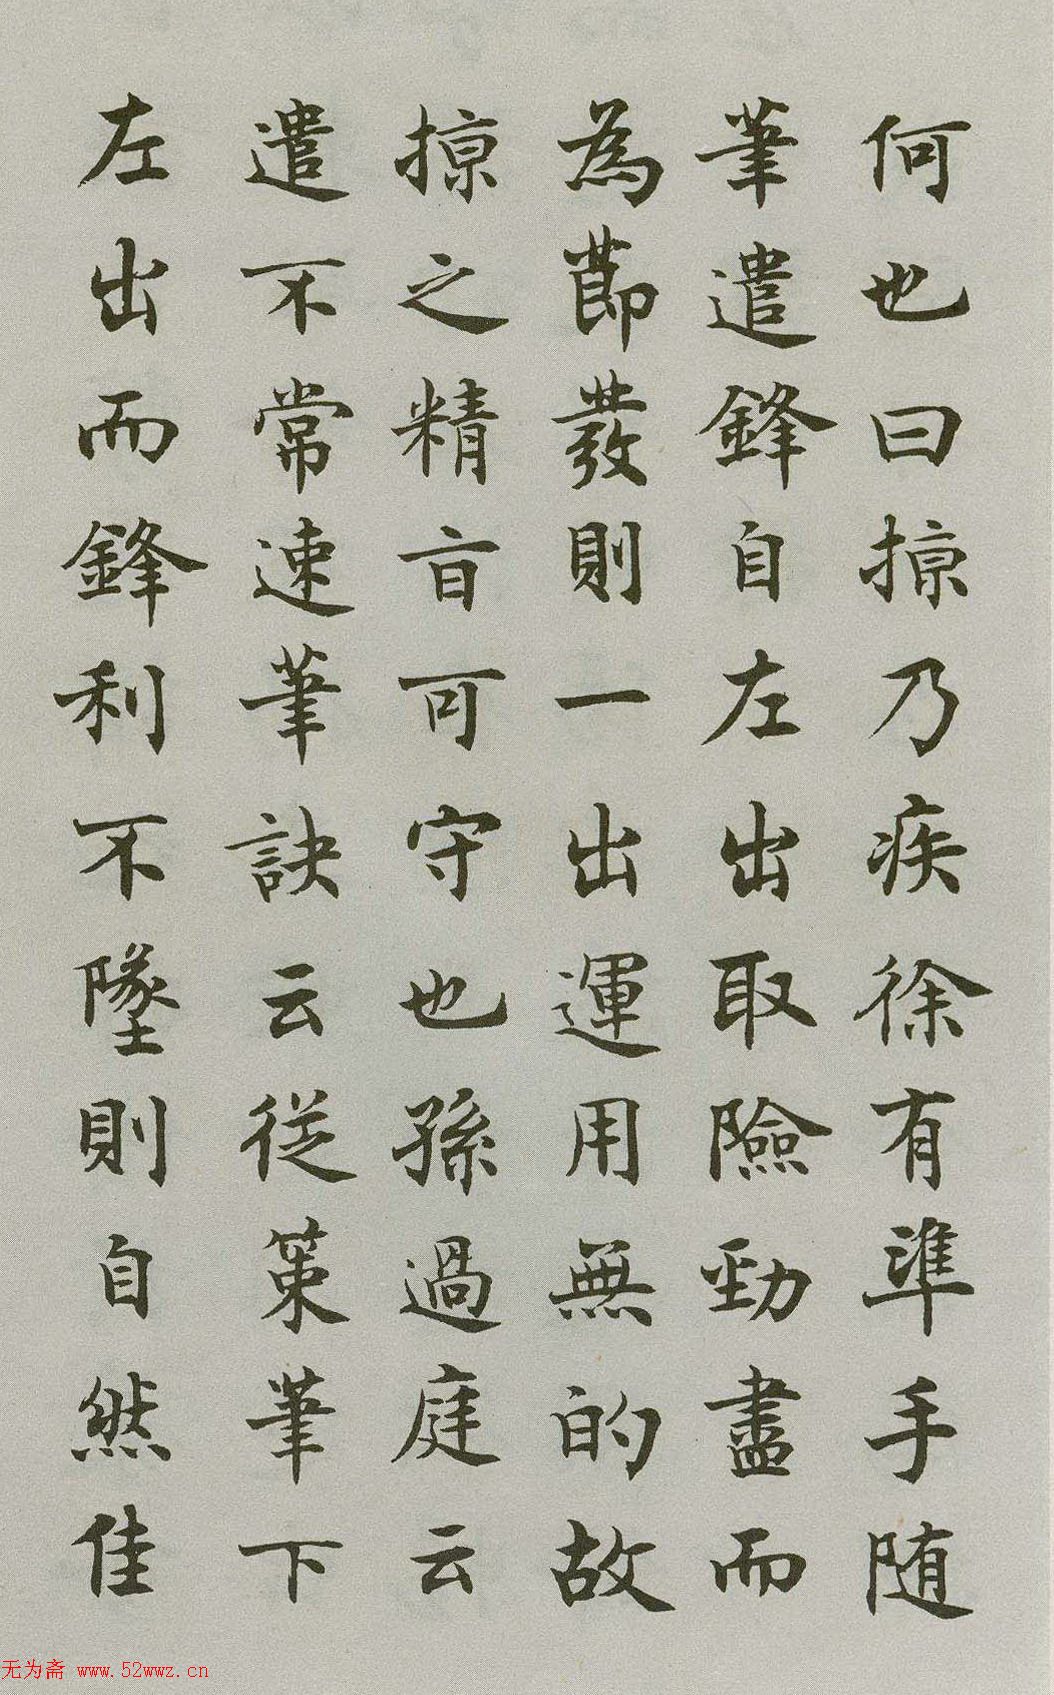 何也曰掠乃疾徐有準手随
筆遣鋒自左出取險勁盡而
為節發則一出運用無的故
掠之精旨可守也孫過庭云
遣不常速筆訣云従策筆下
左出而鋒利不墜則自然佳
无为斋 www.52wwz.cn